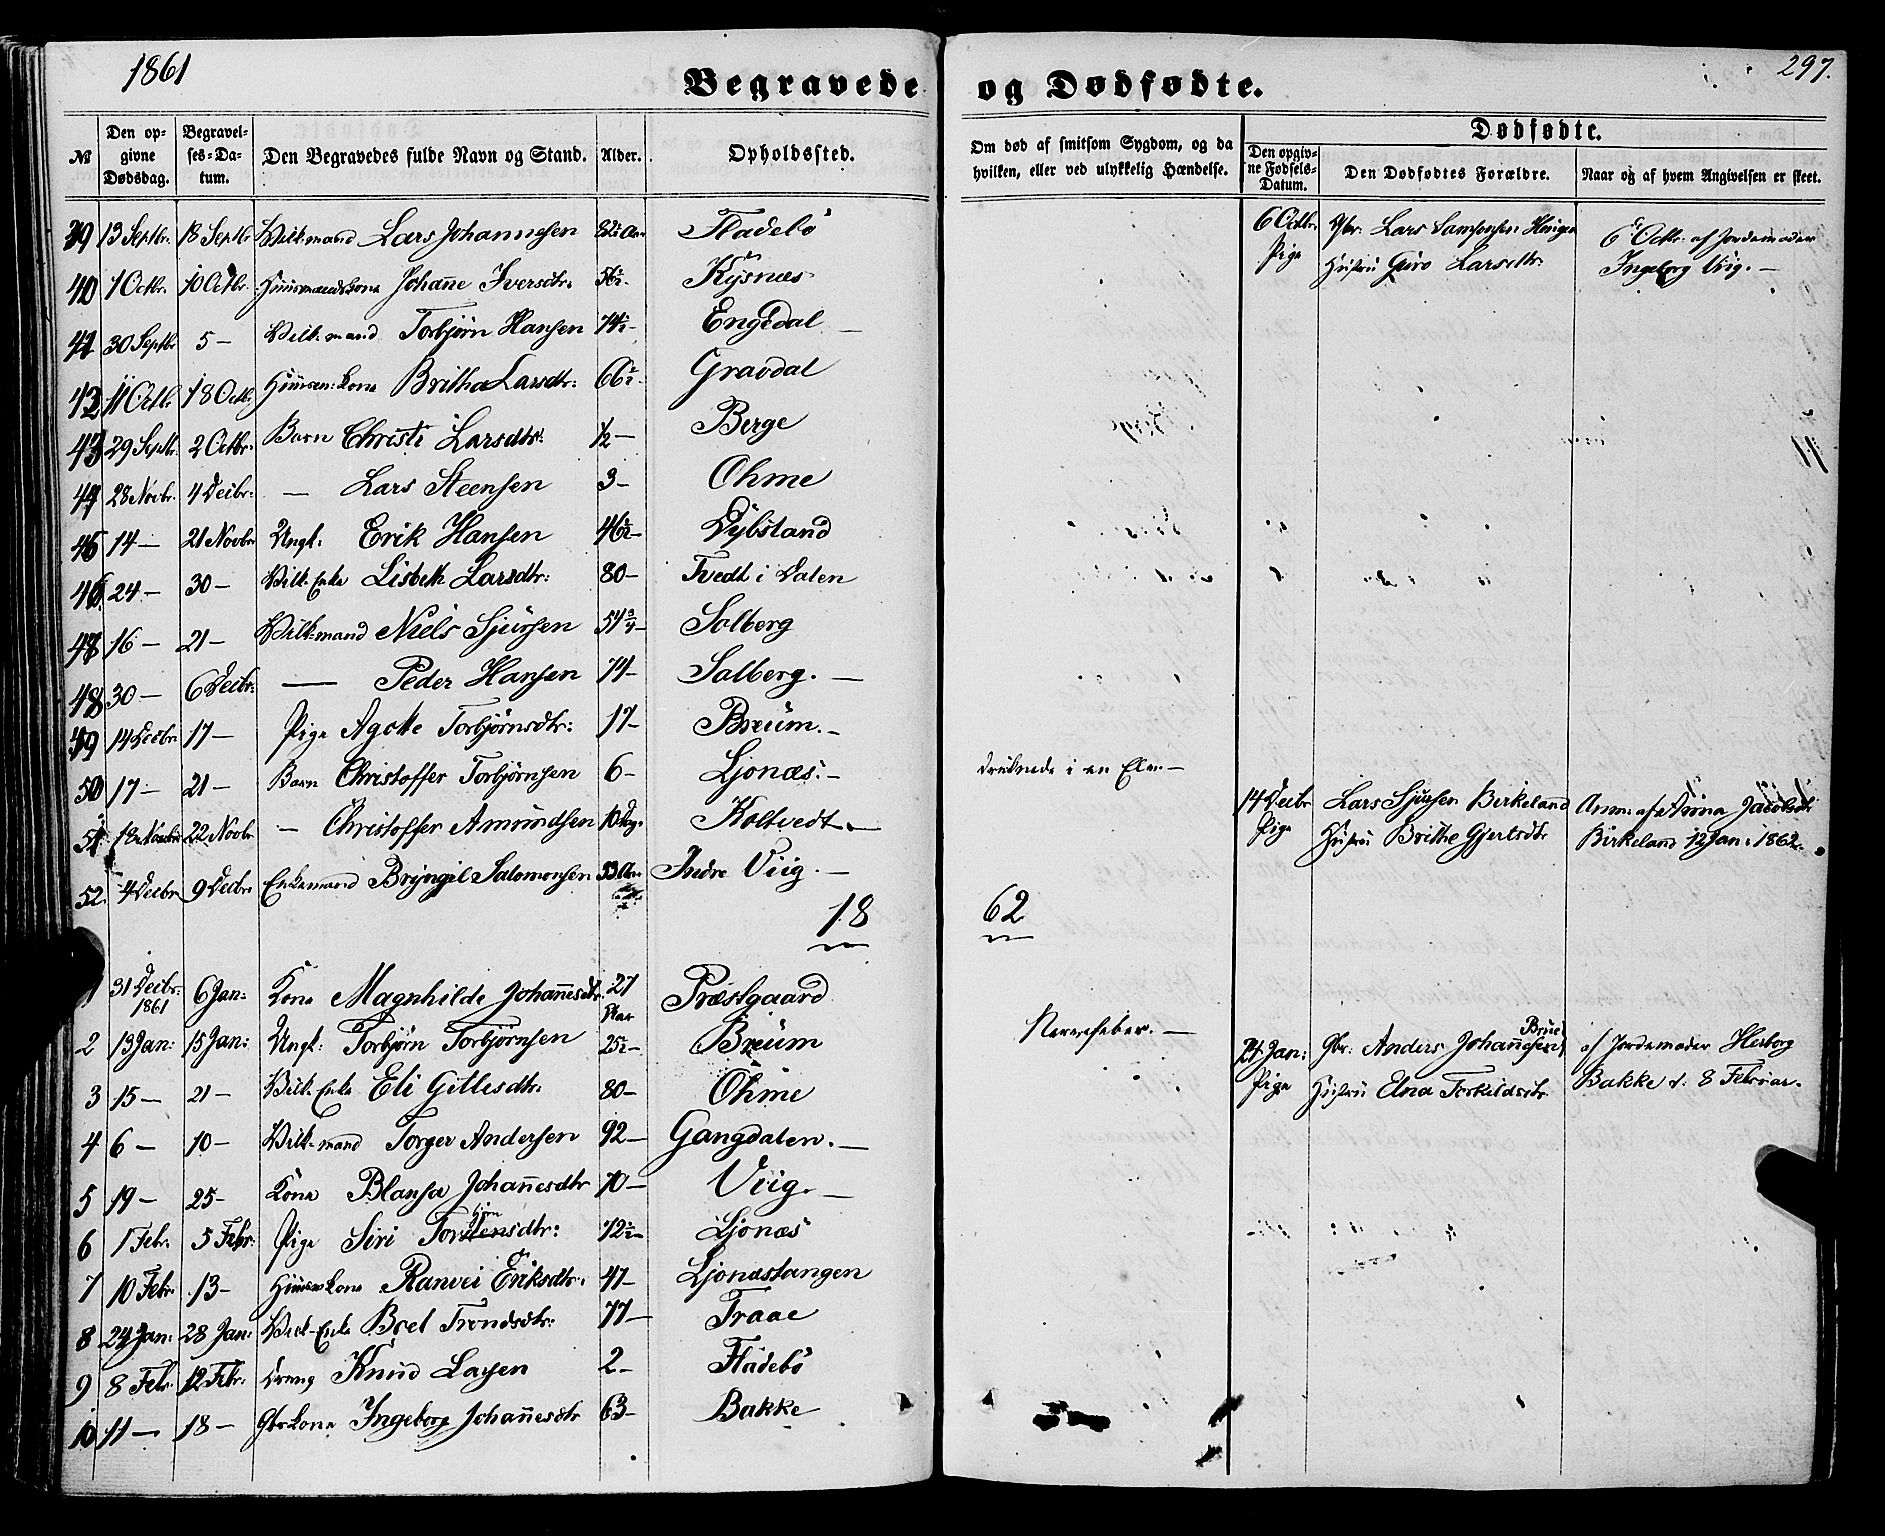 1861
Begravede og Dødfødte.
297.
№
Den opgivne Dødsdag.
Begravelses-Datum.
Den Begravedes fulde Navn og Stand.
Alder.
Opholdssted.
Om død af smitsom Sygdom, og da hvilken, eller ved ulykkelig Hændelse.
Dødfødte.
Den opgivne Fødsels-Datum.
Den Dødfødtes Forældre.
Naar og af hvem Angivelsen er skeet.
39 13 Septbr. 18 Septbr Vilk.mand Lars Johannesen Fladebö
6 Octbr. Pige Gbr. Lars Samsonsen Hustru Guro Larsdtr. 6 Octbr. af Jordemoder Ingeborg Viig. —
40 7 Octbr. 10 Octbr. Huusmandskone Johañe Iversdtr. 56½ Kysnæs
41 30 Septbr 5 — Vilk.mand Torbjørn Hansen 74½ — Engedal —
42 11 Octbr 18 Octbr. Huusm.Kone Britha Larsdtr: 66½ — Gravdal
43 29 Septbr. 2 Octbr. Barn Christi Larsdtr: ½ — Berge
44 28 Novbr. 4 Decbr: — Lars Steensen 3 — Ohme
45 14 — 21 Novbr Ungk: Erik Hansen 46½ — Dybsland
46 24 — 30 — Vilk. Enke Lisbeth Larsdtr: 80 — Tvedt i Dalen
47 16 — 21 — Vilk.mand Niels Sjursen 54¾ — Solberg
48 30 — 6 Decbr: — Peder Hansen 74 — Salberg. —
49 14 Decbr 17 — Pige Agotte Torbjørnsdtr: 17 — Breum. —
50 17 — 21 — Barn Christoffer Torbjørnsen 6 — Ljonæs. — druknede i en Elv. —
51 18 Novbr 22 Novbr — Christoffer Amundsen 10 Dage Koltvedt. —
14 Decbr Pige Lars Sjursen Birkeland Hustru Brithe Gjertsdtr Anm: af Jacobsdtr Birkeland 12 Jan: 1862.
52. 4 Decbr 9 Decbr Enkemand Brÿngil Salomonsen Indre Viig. —
18 62
1 31 Decbr: 1861 6 Jan: Kone Magnhilde Johañesdtr. 27 Aar Præstgaard
2 13 Jan: 15 Jan: Ungk: Torbjørn Torbjørnsen 25½ — Breum Nervefeber. —
24 Jan: Pige Gbr: Anders Johañesen Brue Hustru Elna Torkildsdtr af Jordemoder Herborg Bakke d. 8 Februar.
3 15 — 21 — Vilk. Enke Eli Gillesdtr. 80 — Ohme
4 6 — 10 — Vilk.mand Torger Andersen 92 — Gangdalen. —
5 19 — 25 — Kone Blansa Johañesdtr 70 — Viig. —
6 1 Febr. 5 Febr: Pige Siri Torstensdtr: Ljonæs
7 10 Febr. 13 — Huusm.Kone Ranvei Eriksdtr. 47 — Ljonæstangen
8 24 Jan: 28 Jan: Vilk. Enke Boel Trondsdtr: 77 — Traae
9 8 Febr. 12 Febr. Dreng Knud Larsen 2 — Fladebö
10 11 — 18 — Gbr Kone Ingeborg Johañesdtr 63 — Bakke